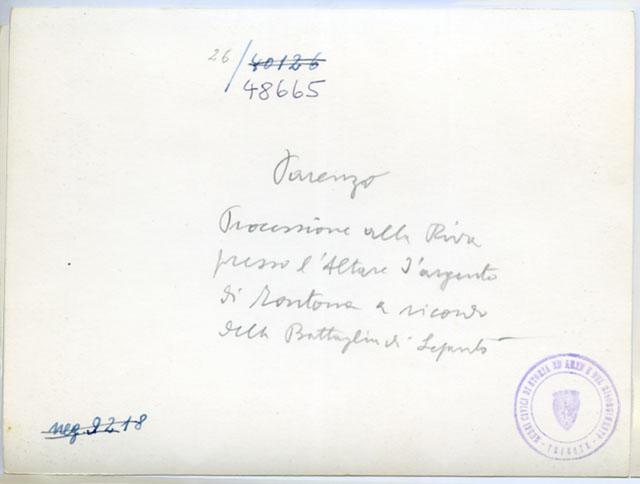 26/ 40126
48665
Parenzo
Processione alla Riva
presso l'Altare d'argento
di Montona a ricordo
della Battaglia di Lepanto
neg. 2218
MUSEI CIVICI DI STORIA ED ARTE E DEL RISORGIMENTO
- TRIESTE -